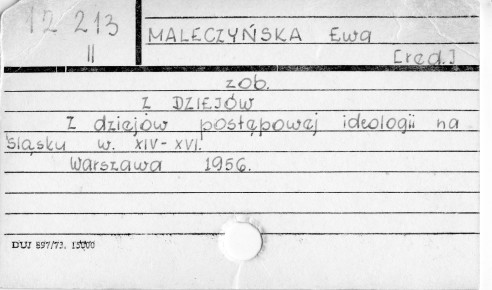 12 213
II
MALECZYŃSKA Ewa
[red.]
zob.
Z DZIEJÓW
Z dziejów postępowej ideologii na
Śląsku w. XIV-XVI.
Warszawa 1956.
DUJ 897/73. 15000